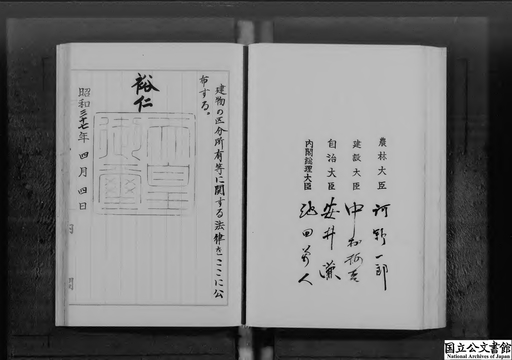 農林大臣 河野一郎
建設大臣 中村梅吉
自治大臣 安井謙
内閣総理大臣 池田勇人
建物の区分所有等に関する法律をここに公
布する。
裕仁
天皇
御璽
昭和三十七年四月四日
国立公文書館
National Archives of Japan